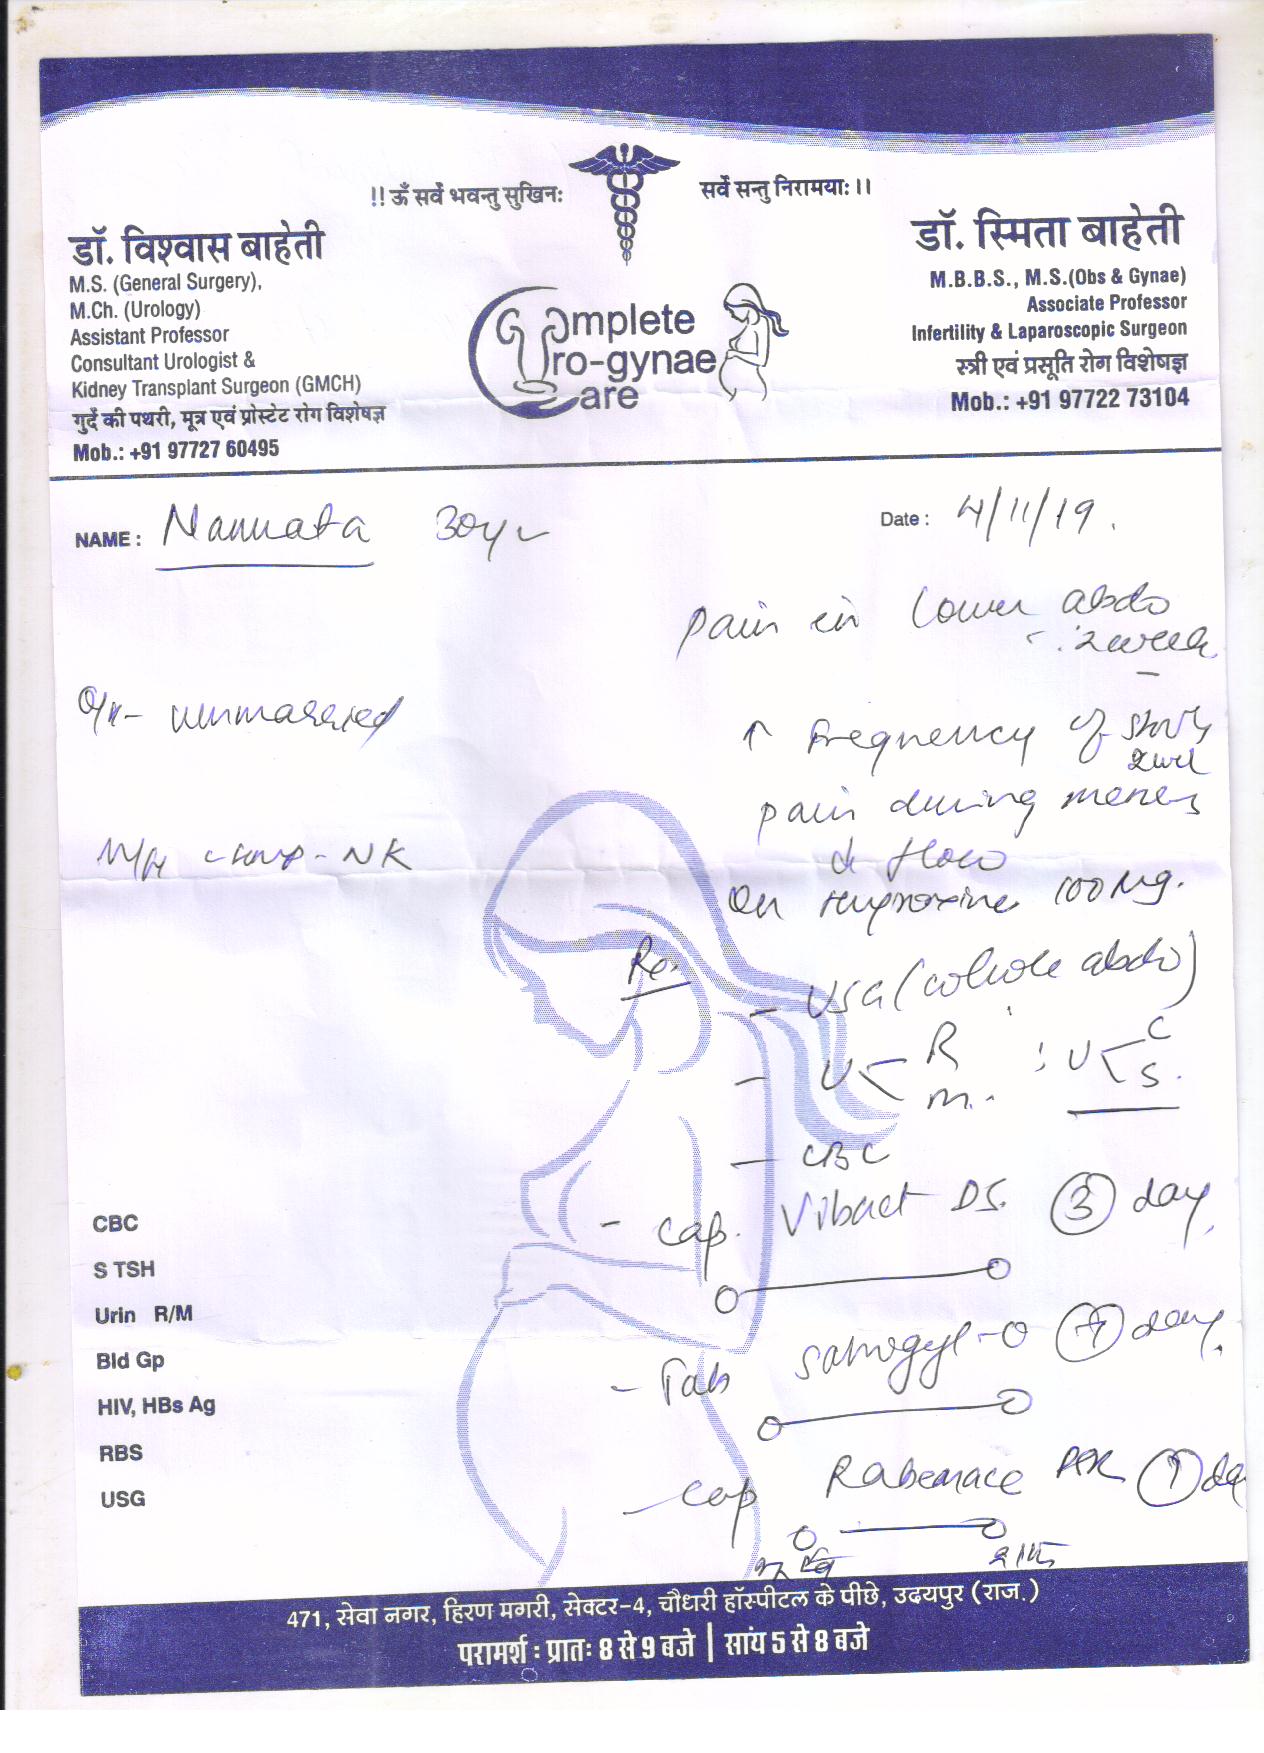 !! ऊँ सर्वे भवन्तु सुखिनः
सर्वे सन्तु निरामयाः ।।
डॉ. विश्वास बाहेती
M.S. (General Surgery),
M.Ch. (Urology)
Assistant Professor
Consultant Urologist &
Kidney Transplant Surgeon (GMCH)
गुर्दे की पथरी, मूत्र एवं प्रोस्टेट रोग विशेषज्ञ
Mob.: +91 97727 60495
Complete
Uro-gynae
Care
डॉ. स्मिता बाहेती
M.B.B.S., M.S.(Obs & Gynae)
Associate Professor
Infertility & Laparoscopic Surgeon
स्त्री एवं प्रसूति रोग विशेषज्ञ
Mob.: +91 97722 73104
NAME : 30yr
Date : 4/11/19.
pain in lower abdo
2 week
O/H- unmarried
↑ frequency of
pain during menses
M/H - NK
& flow
On 100 Mg.
- USG (whole abdo)
- U < R M. ; U < C S.
- CBC
- Cap. Vibact DS. 3 day
- Tab Satrogyl-O 7 day
- Cap day
CBC
S TSH
Urin R/M
Bld Gp
HIV, HBs Ag
RBS
USG
471, सेवा नगर, हिरण मगरी, सेक्टर-4, चौधरी हॉस्पीटल के पीछे, उदयपुर (राज.)
परामर्श : प्रातः 8 से 9 बजे | सांय 5 से 8 बजे